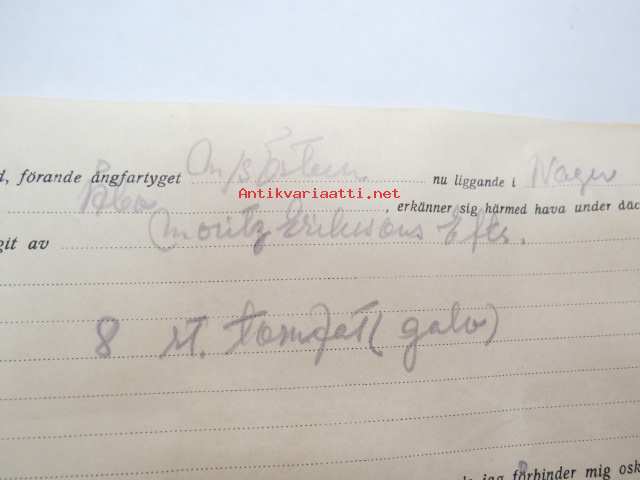 d, förande ångfartyget M/s Östern nu liggande i Nagu
Antikvariaatti.net
Åbo , erkänner sig härmed hava under däc
git av Moritz Erikssons Eftr.
8 st. tomfat (galv)
jag förbinder mig osk